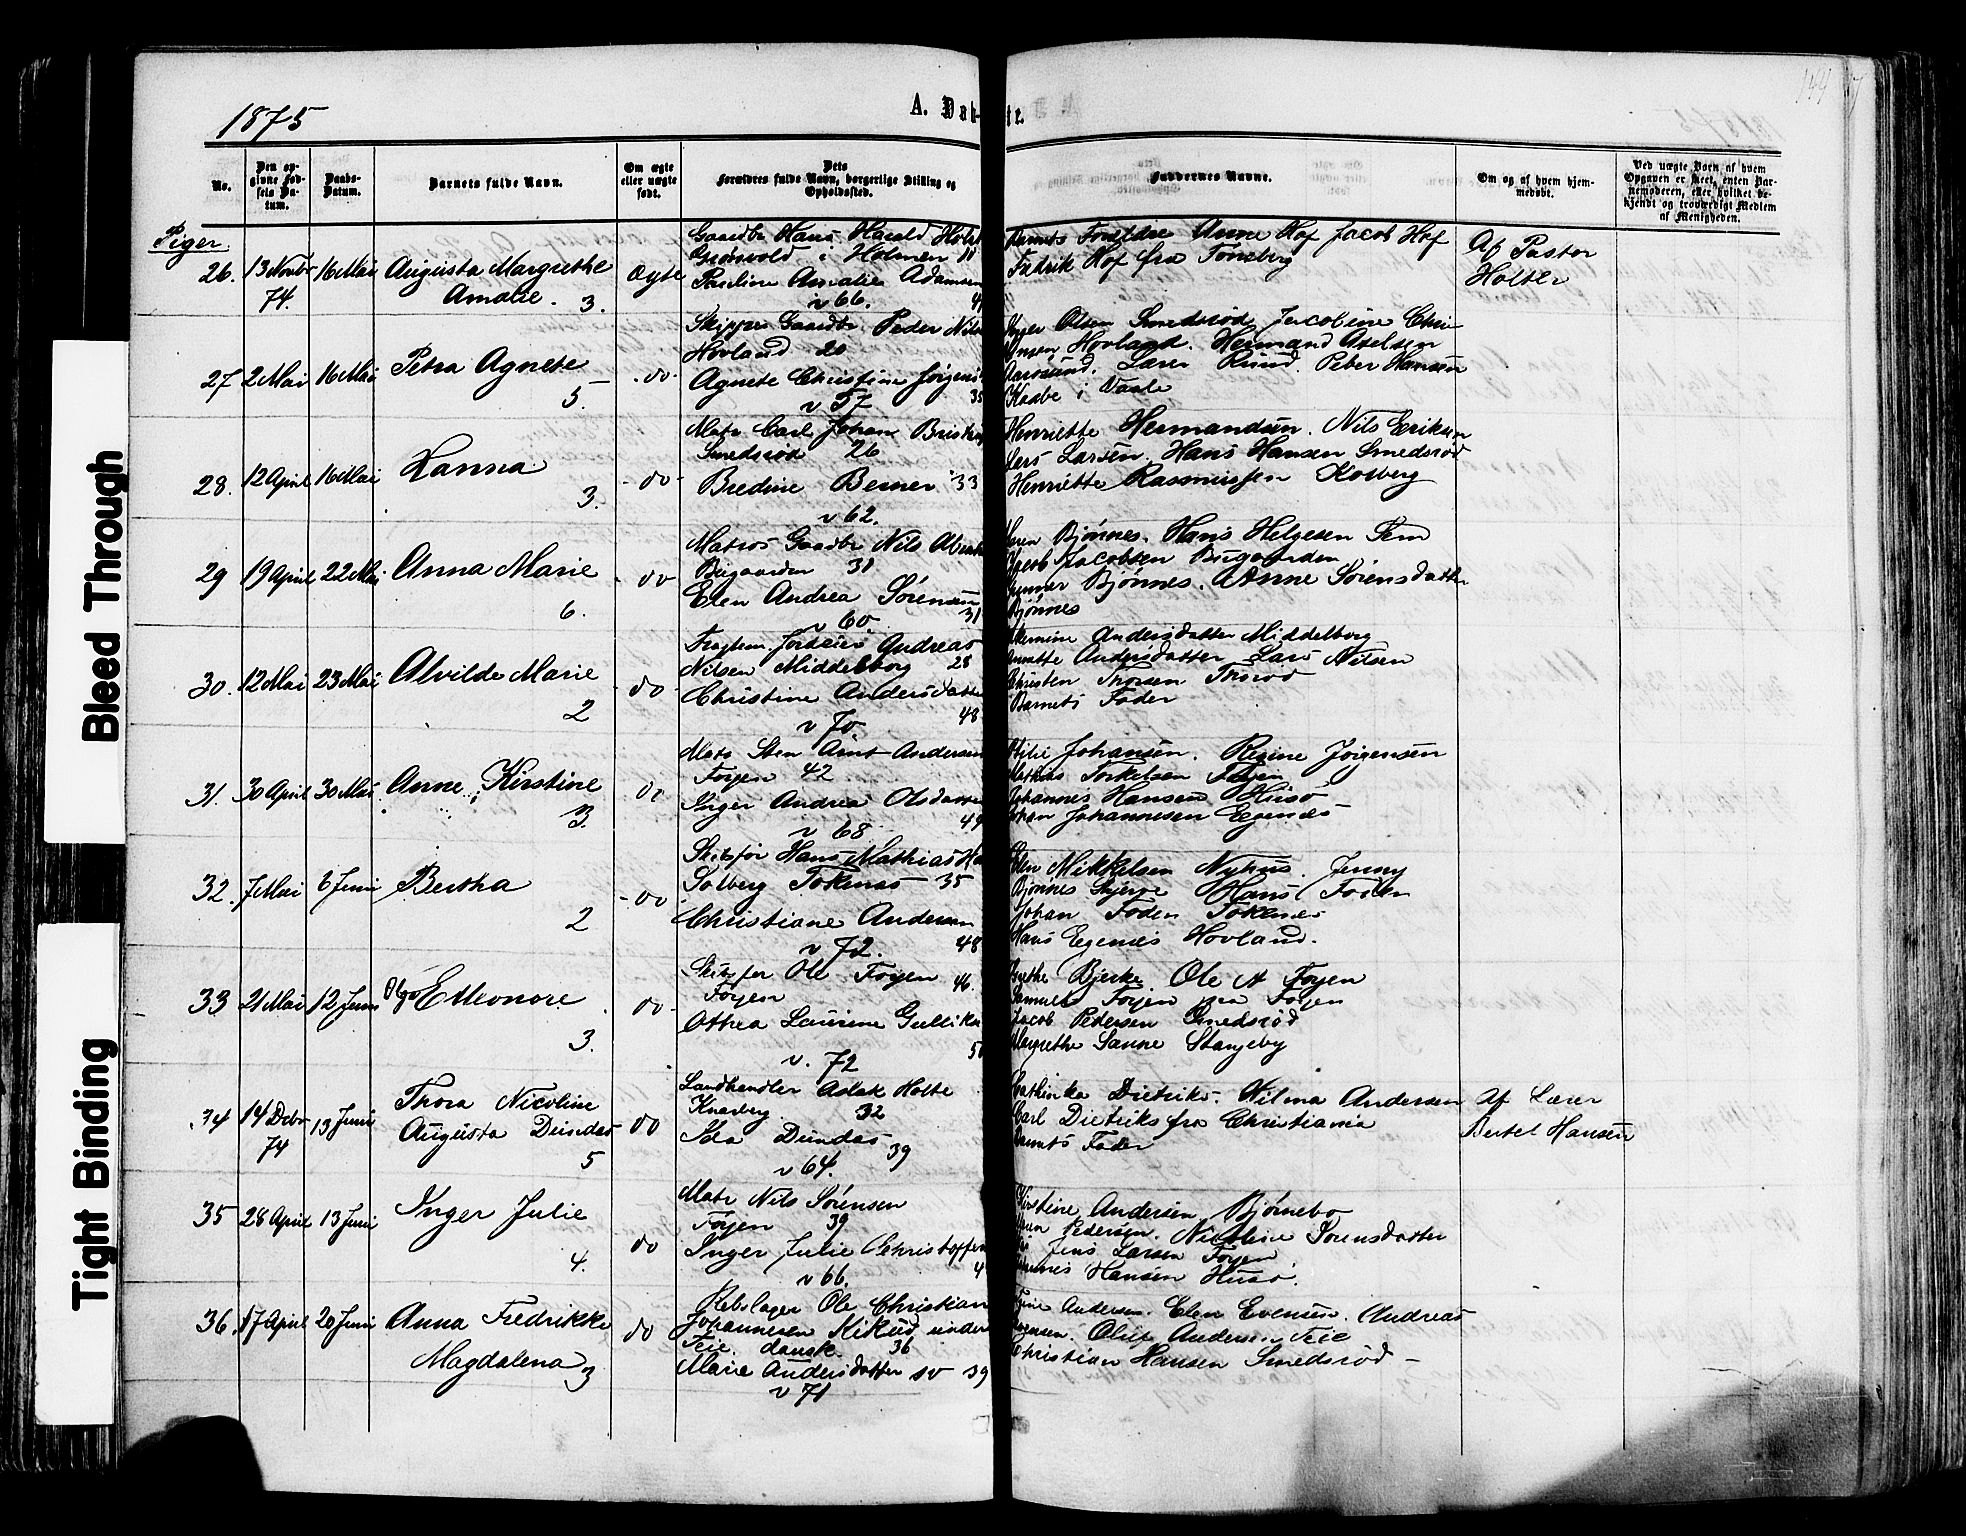 Bleed Through
Tight Binding
1875
A. Døb-
te.
144
No.
Den op-
givne Fød-
sels Da-
tum.
Daabs-
Datum.
Barnets fulde Navn.
Om ægte
eller uægte
født.
Dets
Forældres fulde Navn, borgerlige Stilling og
Opholdssted.
Faddernes Navne.
Om og af hvem hjem-
medøbt.
Ved uægte Børn af hvem
Opgaven er skeet, enten Bar-
nemoderen, eller hvilket be-
kjendt og troværdigt Medlem
af Menigheden.
Piger
26. 13 Novbr 74. 16 Mai
Augusta Margrethe
Amalie. 3.
ægte
Gaardbr Hans Harald Holst
Grønvold i Holmen
Pauline Amalie Adamsen
v 66.
Barnets Forældre Anne Hof Jacob Hof
Fredrik Hof fra Tønsberg
Af Pastor
Holter
27 2 Mai 16 Mai
Petra Agnete
5.
do
Skipper Gaardbr. Peder Nils
Hovland 20
Agnete Christine Jørgens
35
v 57
Inger Olsen Smedsrød Jacobine Chri
Hovland. Hermand Axelsen
Aarøsund. Lærer Ruud. Peter Hansen
Kaabe i Vaale
28. 12 April 16 Mai
Hanna
3.
do
Matr Carl Johan
Smedsrød 26
Bredine Berner 33
v 62.
Henriette Hermandsen. Nils Eriksen
Lars Larsen. Hans Hansen Smedsrød
Henriette Rasmussen Kolberg
29 19 April 22 Mai
Anna Marie
6.
do
Matros Gaardbr Nils
Bugaarden 31
Elen Andrea Sørensen
31
v 60.
Maren Bjønnes. Hans Helgesen Fem
Jacob Jacobsen Bugaarden
Gunner Bjønnes. Anne Sørensdatter
Bjønnes
30. 12 Mai 23 Mai
Alvilde Marie
2
do
Andreas
Nilsen Middelborg 28
Christine Andersdatter
48
v 70.
Andersdatter Middelborg
Andersdatter Lars Nilsen
Christen Thorsen Thorød
Barnets Fader
31. 30 April 30 Mai
Anne Kirstine
3.
do
Matr Sten Arnt Andersen
Foyen 42
Inger Andrea Olsdatter
49
v 68
Johansen. Regine Jørgensen
Mathias Torkelsen Foyen
Johannes Hansen Husø
Johan Johannesen Egenes
32. 7 Mai 6 Juni
Bertha
2
do
Skibsfør Hans Mathias
Solberg Tokenæs 35
Christiane Andersen
48
v 72.
Elen Mikkelsen Nyhus. Jenny
Bjønnes Skjerve Hans Foden
Johan Foden Tokenes
Hans Egenes Hovland.
33 21 Mai 12 Juni
Olga Elleonore
3.
do
Skibsfør Ole Foyen 46
Foyen
Othea Laurine Gullik
v. 72
Grethe Bjerke Ole A Foyen
Samuel Foyen paa Foyen
Jacob Pedersen Smedsrød
Margrethe Sanne Stangeby
34 14 Decbr 74 13 Juni
Thora Nicoline
Augusta Dundas
5
do
Landhandler Aslak Holte
Knarberg 32
Ida Dundas 39
v 64.
Cathinka Dietriks. Wilma Andersen
Carl Dietriks fra Christiania
Barnets Fader
Af Lærer
Bertel Hansen
35 28 April 13 Juni
Inger Julie
4.
do
Matr Nils Sørensen
Foyen 39
Inger Julie Christoffersen
v 66.
Kirstine Andersen Bjørnebo
Pedersen. Nicoline Sørensdatter
Jens Larsen Foyen
Johannes Hansen Husø
36. 17 April 20 Juni
Anna Fredrikke
Magdalena 3
do
Rebslager Ole Christian
Johannesen Kikud under
Teie. dansk. 36
Marie Andersdatter sv 39
v 71
Andersen. Elen Evensen. Andreas
Oluf Andersen Teie
Christian Hansen Smedsrød